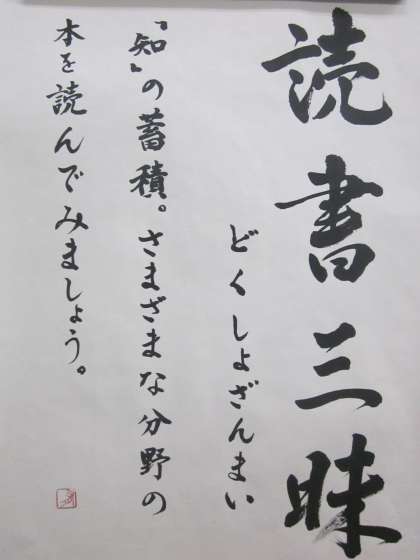 読書三昧
どくしょざんまい
『知』の蓄積。さまざまな分野の
本を読んでみましょう。